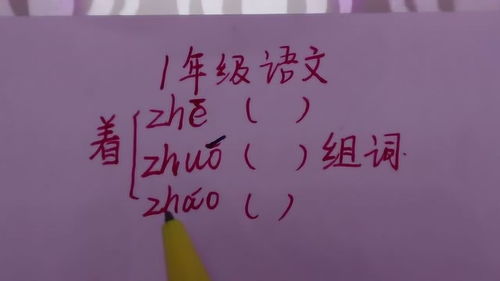 1年级语文
zhē ( )
着 zhuó ( ) 组词
zháo ( )